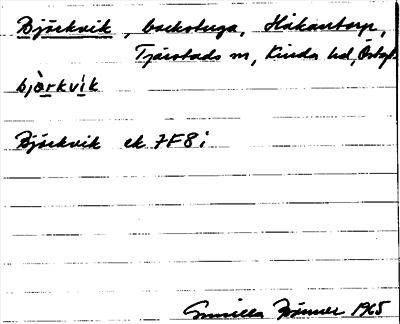 Björkvik, backstuga, Håkantorp,
Tjärstads sn, Kinda hd, Östergl.
bjòrkvìk
Björkvik ek 7F8i
Gunilla Brönner 1965